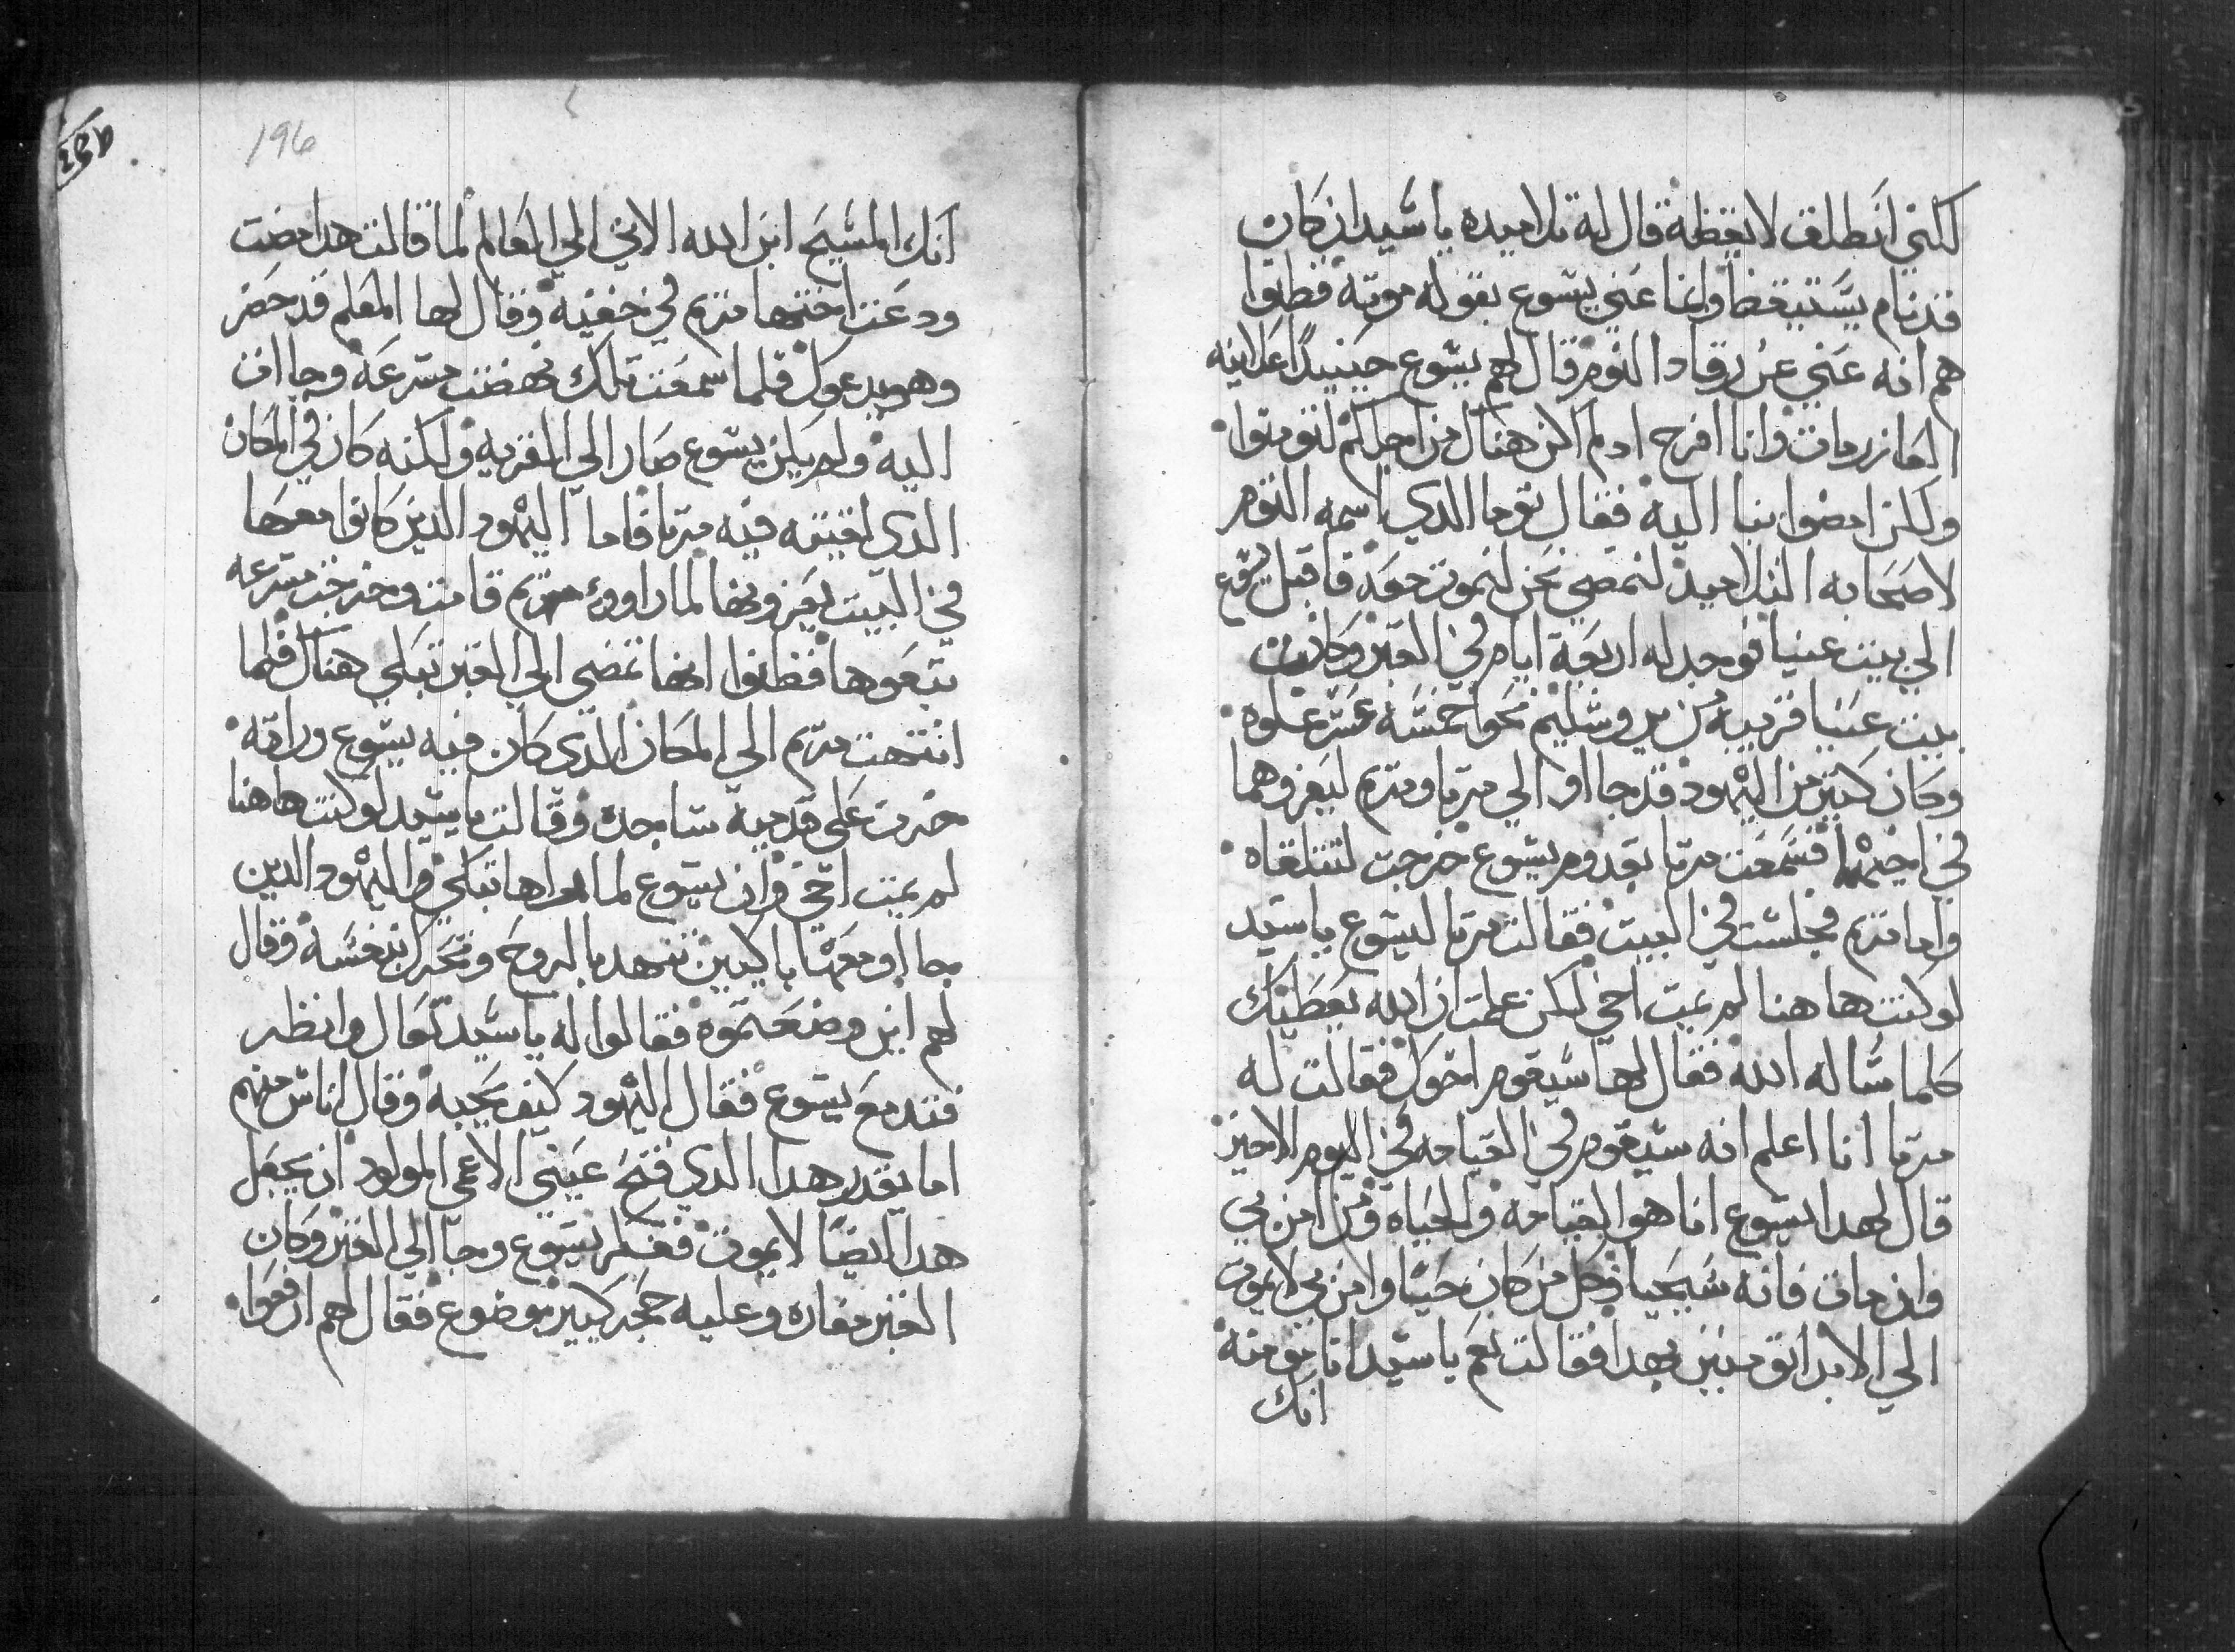 لكني انطلق لايقظه قال له تلاميده يا سيد ان كان
قد نام يستيقظ وانما عني يسوع بقوله موته فظنوا
هم انه عني عن رقاد النوم قال لهم يسوع حينيدا علانيه
العازر مات وانا افرح اد لم اكن هناك من اجلكم لتومنوا
ولكن امضوا بنا اليه فقال توما الدي اسمه التوم
لاصحابه التلاميد لنمضي نحن لنموت معه فاقبل يسوع
الي بيت عنيا فوجد له اربعة ايام في القبر وكانت
بيت عنيا قريبه من يروشليم نحوا خمسه عشر غلوه
وكان كتير من اليهود قد جااوا الي مرتا ومريم ليعزوهما
في اخيهما فسمعت مرتا بقدوم يسوع خرجت لتتلقاه
واما مريم فجلست في البيت فقالت مرتا ليسوع يا سيد
لو كنت هاهنا لم يمت اخي لكن علمت ان الله يعطيك
كلما ساله الله فقال لها سيقوم اخوك فقالت له
مرتا انا اعلم انه سيقوم في القيامه في اليوم الاخير
قال لهدا يسوع انا هو القيامه والحياه ومن امن بي
وان مات فانه سيحيا وكل من كان حيا وامن بي لا يموت
الي الابد اتومنين بهدا فقالت نعم يا سيد انا مومنة
انك
196
انك المسيح ابن الله الاتي الي العالم لما قالت هدا مضت
ودعت اختها مريم في خفيه وقال لها المعلم قد حضر
وهو يدعوك فلما سمعت تلك نهضت مسرعه وجاات
اليه ولم يكن يسوع صار الي القريه ولكنه كان في المكان
الدي لقيته فيه مرتا فاما اليهود الدين كانوا معها
في البيت يعزونها لما راوو مريم قامت وخرجت مسرعه
تبعوها فظنوا انها تمضي الي القبر تبكي هناك فلما
انتهت مريم الي المكان الدي كان فيه يسوع وراته
خرت علي قدميه ساجده وقالت يا سيد لو كنت هاهنا
لم يمت اخي وان يسوع لما راها تبكي واليهود الدين
جااو معها باكيين تنهد بالروح وتحرك بنفسه وقال
لهم اين وضعتموه فقالوا له يا سيد تعال وانظر
فتدمع يسوع فقال اليهود كيف يحبه وقال اناس منهم
اما يقدر هدا الدي فتح عيني الاعمي المولود ان يجعل
هدا ايضا لا يموت ففكر يسوع وجا الي القبر وكان
القبر مغاره وعليه حجر كبير موضوع فقال لهم ارفعوا